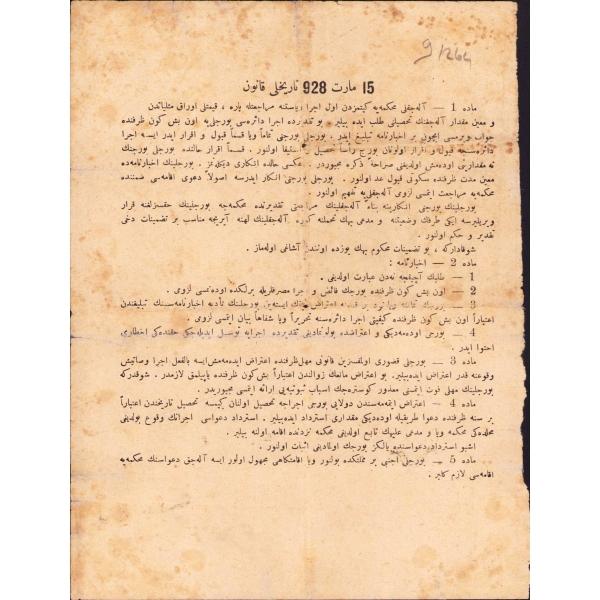 9/264
15 مارت 928 تاریخلی قانون
ماده 1 — آله‌جقلی محکمه‌یه کیتمزدن اول اجرا ریاستنه مراجعتله پاره ، قیمتلی اوراق مثلیاتدن
و معین مقدار آله‌جغنك تحصیلنی طلب ایده بیلیر . بو تقدیرده اجرا دائره‌سی بورجلی‌یه اون بش کون ظرفنده
جواب ویرمسی ایچون بر اخبارنامه تبلیغ ایدر . بورجلی بورجنی تماماً ویا قسماً قبول و اقرار ایدر ایسه اجرا
دائره‌سنجه قبول و اقرار اولونان بورج رأساً تحصیل و استیفا اولنور . قسماً اقرار حالنده بورجلی بورجنك
نه مقدارینی اوده‌مش اولدیغنی صراحةً ذکره مجبوردر . عکسی حالده انکاری دیکلنمز . بورجلینك اخبارنامه‌ده
معین مدت ظرفنده سکوتی قبول عد اولنور . بورجلی بورجنی انکار ایدرسه اصولاً دعوی اقامه‌سی ضمننده
محکمه‌یه مراجعت ایتمسی لزومی آله‌جقلی‌یه تفهیم اولنور .
بورجلینك بورجی انکارینه بناءً آله‌جقلینك مراجعتی تقدیرنده محکمه‌جه بورجلینك حقسزلغنه قرار
ویریلیرسه ایکی طرفك وضعیتنه و مدعی بهك تحملنه کوره آله‌جقلینك لهنه آیریجه مناسب بر تضمینات دخی
تقدیر و حکم اولنور .
شوقدارکه ، بو تضمینات محکوم بهك یوزده اونندن آشاغی اوله‌ماز .
ماده 2 — اخبارنامه :
1 — طلبك آچیقجه نه‌دن عبارت اولدیغنی .
2 — اون بش کون ظرفنده بورجك فائض و اجرا مصرفلریله برلکده اوده‌نمسی لزومی .
3 — بورجك تماماً ویا بر قسمنه اعتراض ایتمك ایسته‌ین بورجلینك تأدیه اخبارنامه‌سنك تبلیغندن
اعتباراً اون بش کون ظرفنده کیفیتی اجرا دائره‌سنه تحریراً ویا شفاهاً بیان ایتمسی لزومی .
4 — بورجی اوده‌مه‌دیکی و اعتراضده بولونمادیغی تقدیرده اجرایه توسل ایدیله‌جکی حقنده‌کی اخطاری
احتوا ایدر .
ماده 3 — بورجلی قصوری اولمقسزین قانونی مهل ظرفنده اعتراض ایده‌مه‌مش‌ایسه بالفعل اجرا وصاتیش
وقوعنه قدر اعتراض ایده‌بیلیر. بو اعتراض مانعك زوالندن اعتباراً بش کون ظرفنده یاپیلمق لازمدر . شوقدرکه
بورجلینك مهلی فوت ایتمسنی معذور کوستره‌جك اسباب ثبوتیه‌یی ارائه ایتمسی مجبوریدر.
ماده 4 — اعتراض ایتمه‌مسندن دولایی بورجی اجراجه تحصیل اولنان کیمسه تحصیل تاریخندن اعتباراً
بر سنه ظرفنده دعوا طریقیله اوده‌دیکی مقداری استرداد ایده‌بیلیر . استرداد دعواسی اجرانك وقوع بولدیغی
محلده‌کی محکمه ویا و مدعی علیهك تابع اولدیغی محکمه نزدنده اقامه اولنه بیلیر .
اشبو استرداد دعواسنده یالکز بورجك اولمادیغی اثبات اولنور .
ماده 5 — بورجلی اجنبی بر مملکتده بولنور ویا اقامتکاهی مجهول اولور ایسه آله‌جق دعواسنك محکمه‌یه
اقامه‌سی لازم کلیر .